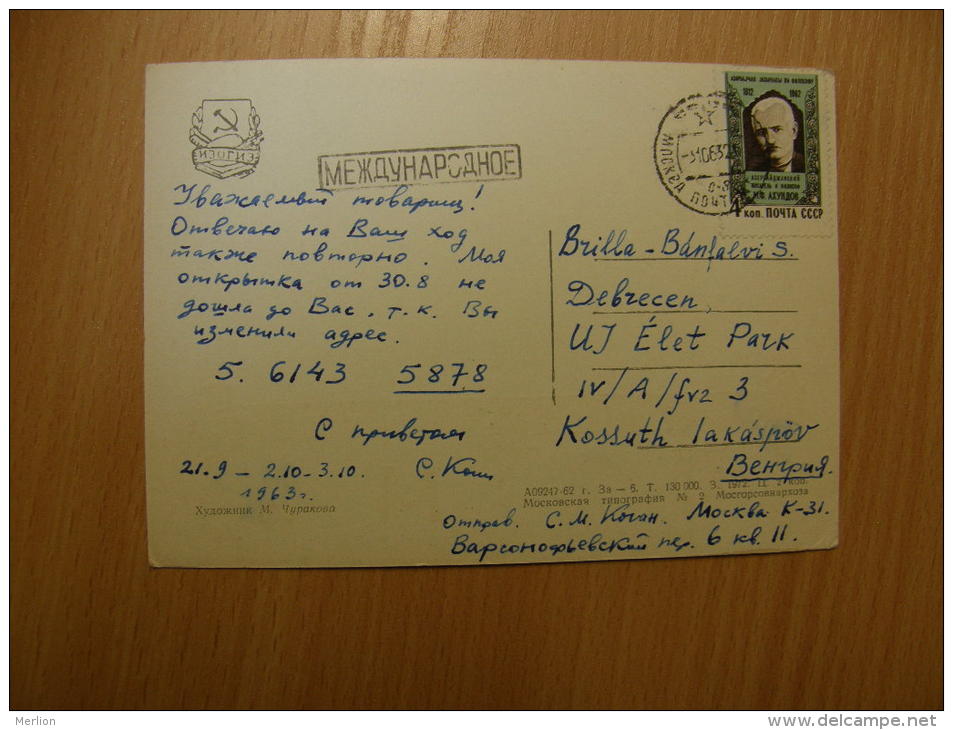 ИЗОГИЗ
МЕЖДУНАРОДНОЕ
Уважаемый товарищ!
Отвечаю на Ваш ход
также повторно. Моя
открытка от 30.8 не
дошла до Вас, т.к. Вы
изменили адрес.
5. 6143 5878
С приветом
21.9 – 2.10-3.10. С. Коган
1963 г.
Художник М. Чуракова
1812 1962
АЗЕРБАЙДЖАНСКИЙ
ПИСАТЕЛЬ И ФИЛОСОФ
М.Ф. АХУНДОВ
4 коп. ПОЧТА СССР
МОСКВА ПОЧТАМТ
Brilla-Bánfalvi S.
Debrecen,
UJ Élet Park
IV/A/fvz 3
Kossuth lakáspöv
Венгрия.
А09247-62 г. За — 6. Т. 130 000. З. 1972. Ц. 2 коп.
Московская типография № 2 Мосгорсовнархоза
Отправ. С. М. Коган. Москва К-31.
Варсонофьевский пер. 6 кв. 11.
Merlion
http://www.delcampe.net